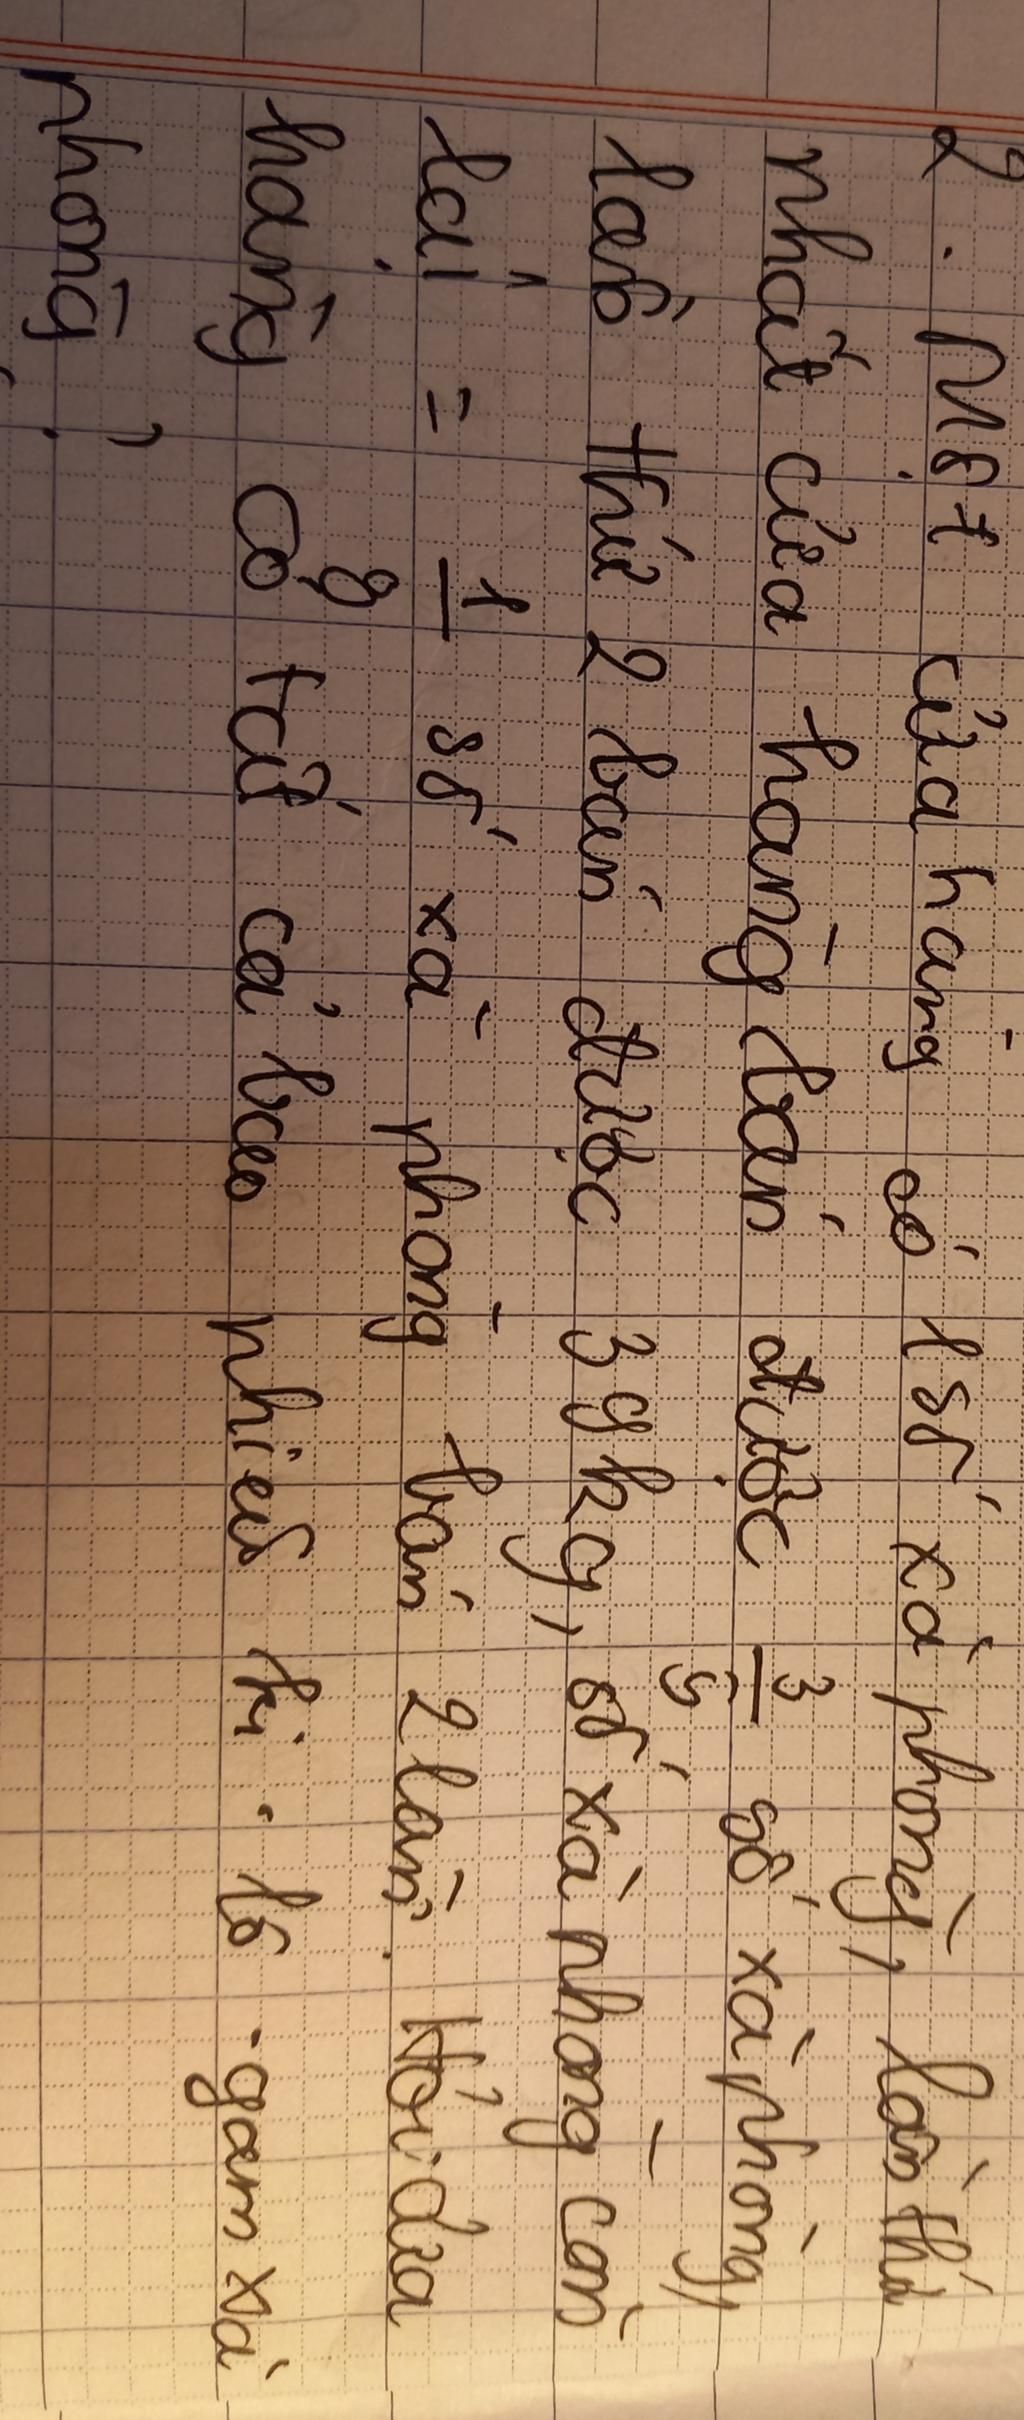 2. Một cửa hàng có 1 số xà phòng, lần thứ
nhất cửa hàng bán được 3/5 số xà phòng,
lần thứ 2 bán được 39 kg, số xà phòng còn
lại = 1/8 số xà phòng bán 2 lần. Hỏi cửa
hàng có tất cả bao nhiêu ki - lô - gam xà
phòng?